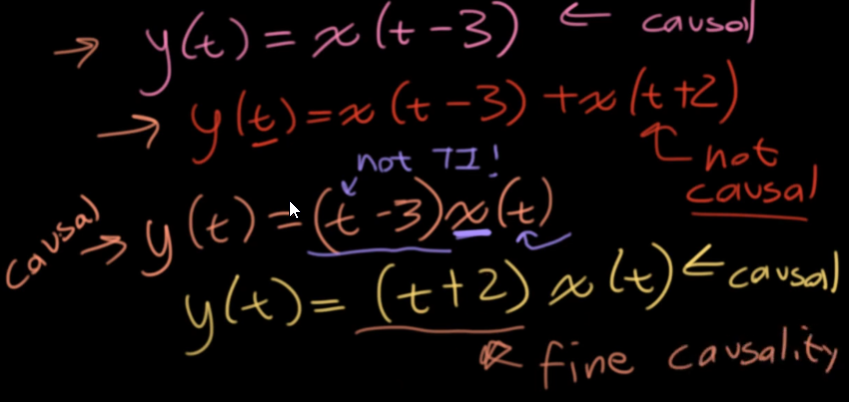 → y(t) = x(t-3) ← causal
→ y(t) = x(t-3) + x(t+2)
not causal
not TI!
causal → y(t) = (t-3)x(t)
y(t) = (t+2) x(t) ← causal
fine causality